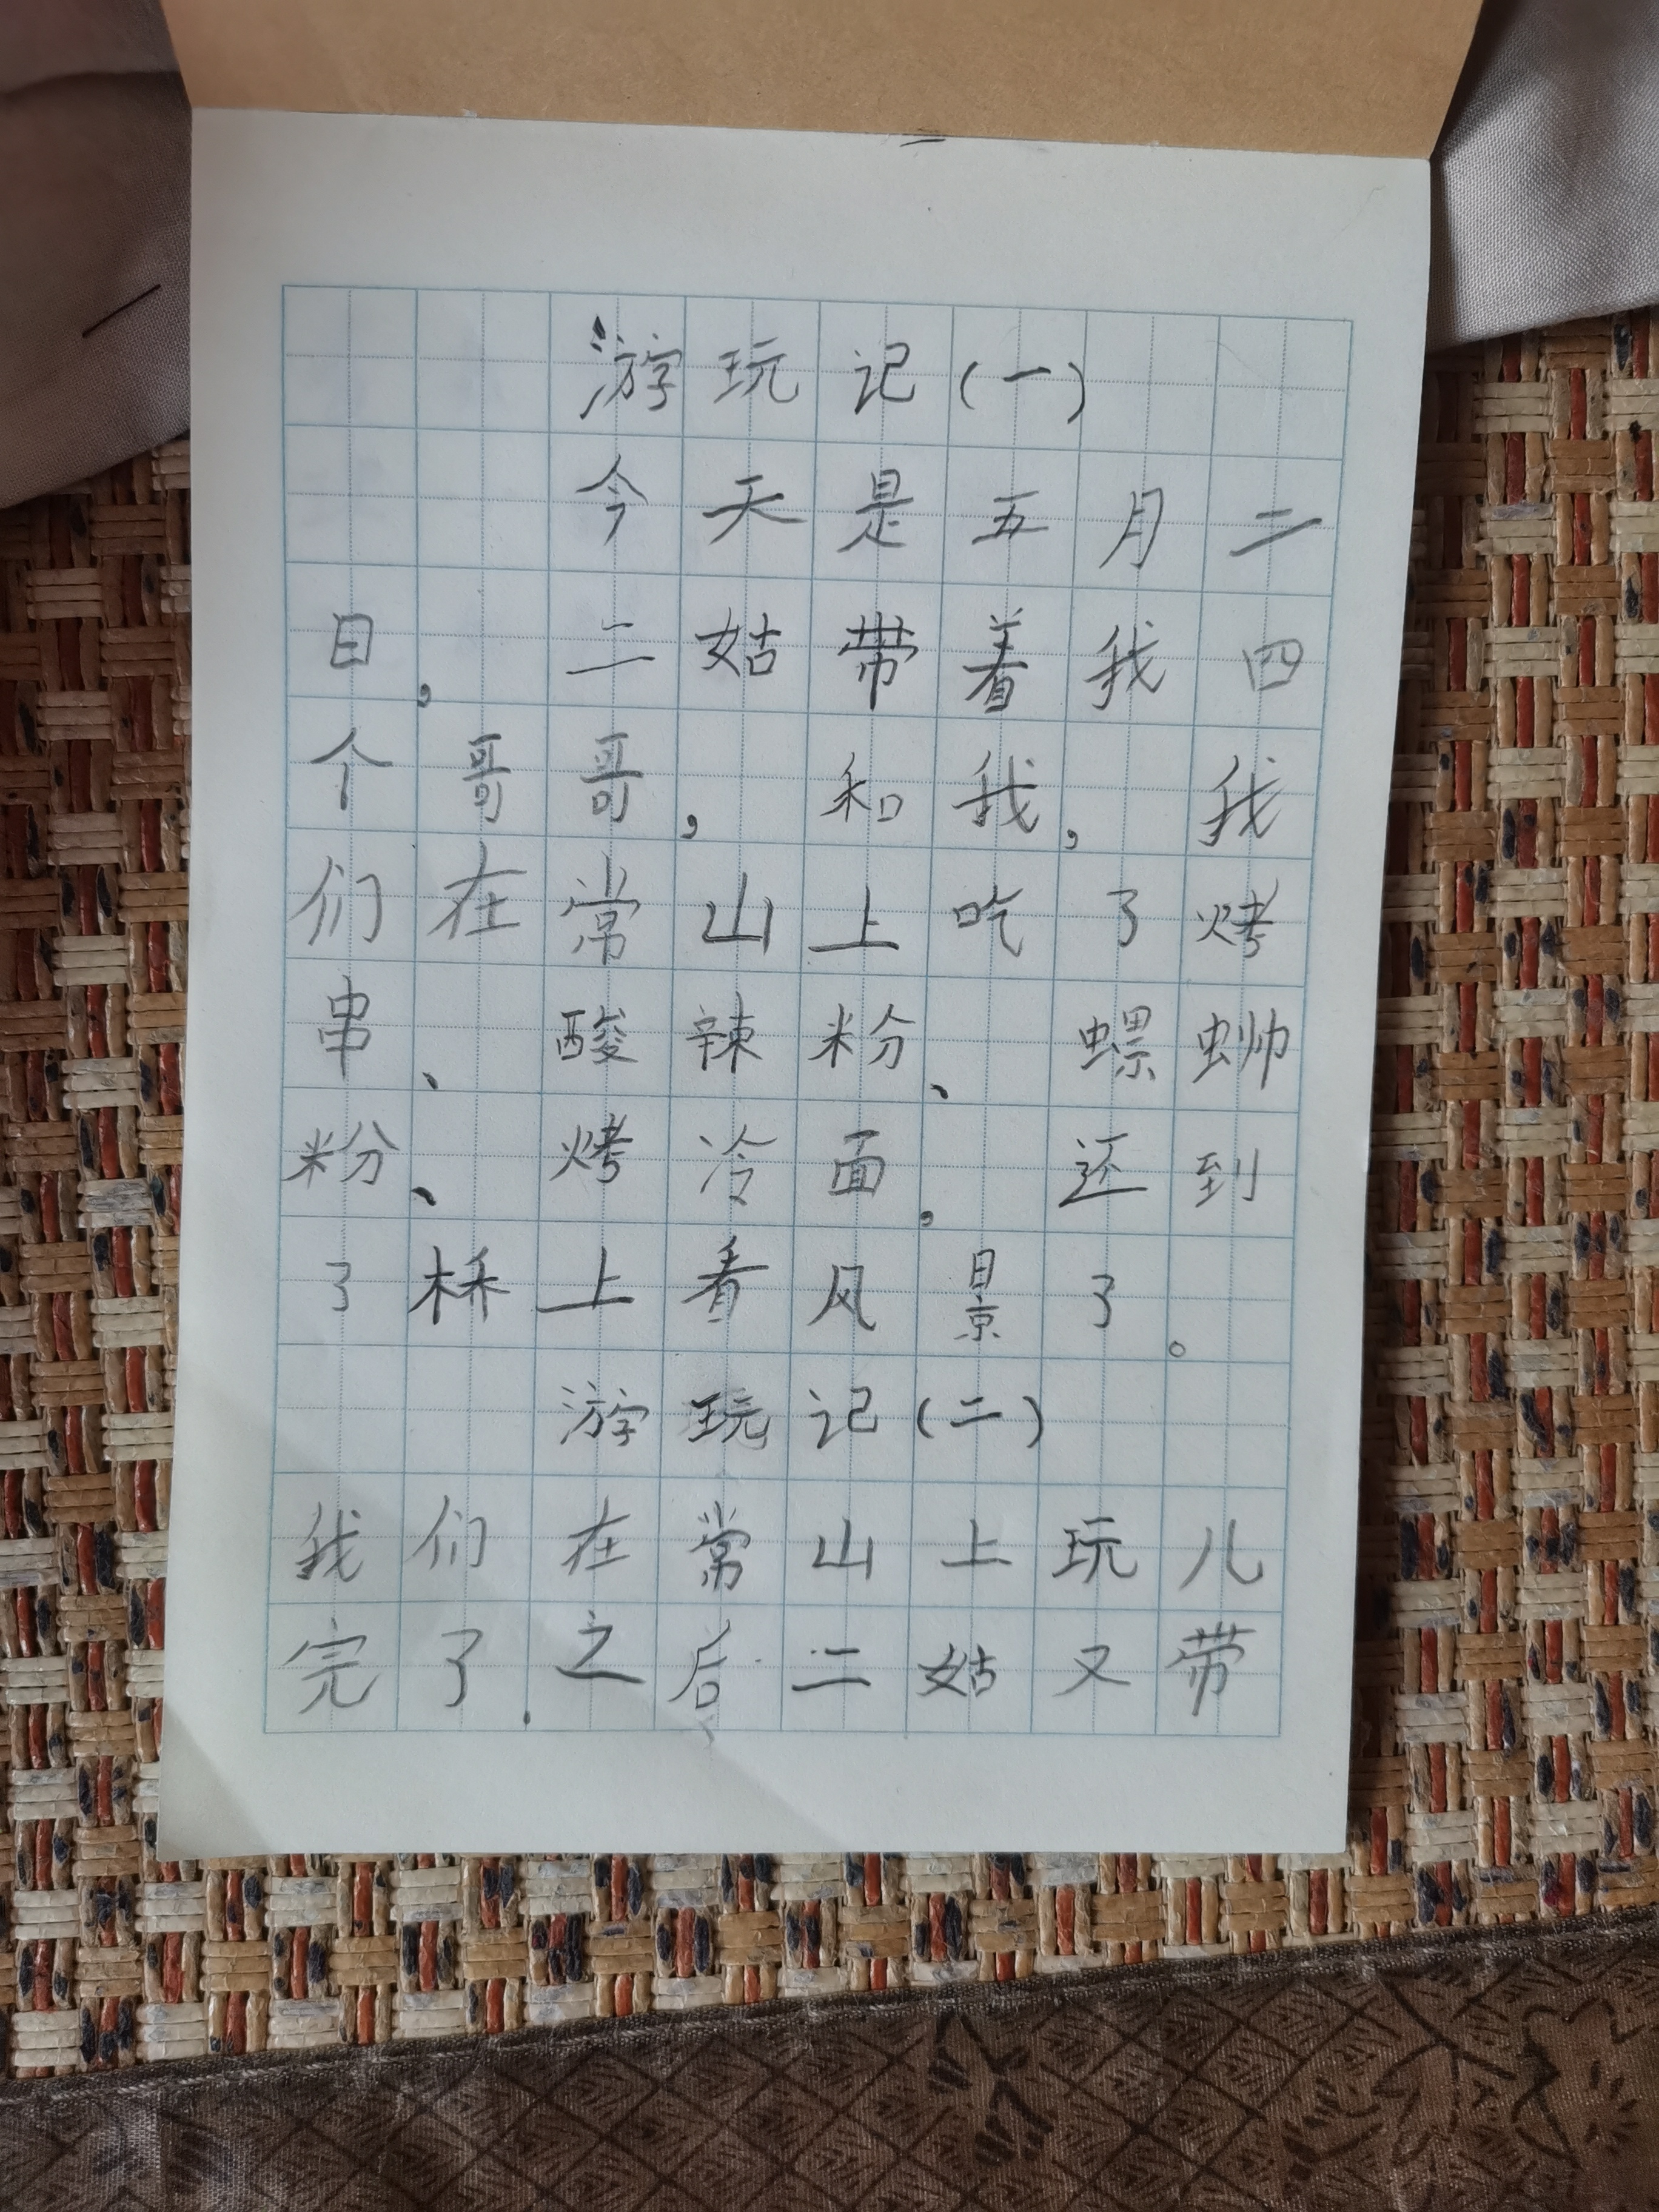 游玩记(一)
今天是五月二
日，二姑带着我四
个哥哥，和我，我
们在常山上吃了烤
串、酸辣粉、螺蛳
粉、烤冷面，还到
了上看风景了。
游玩记(二)
我们在常山上玩儿
完了.之后二姑又带